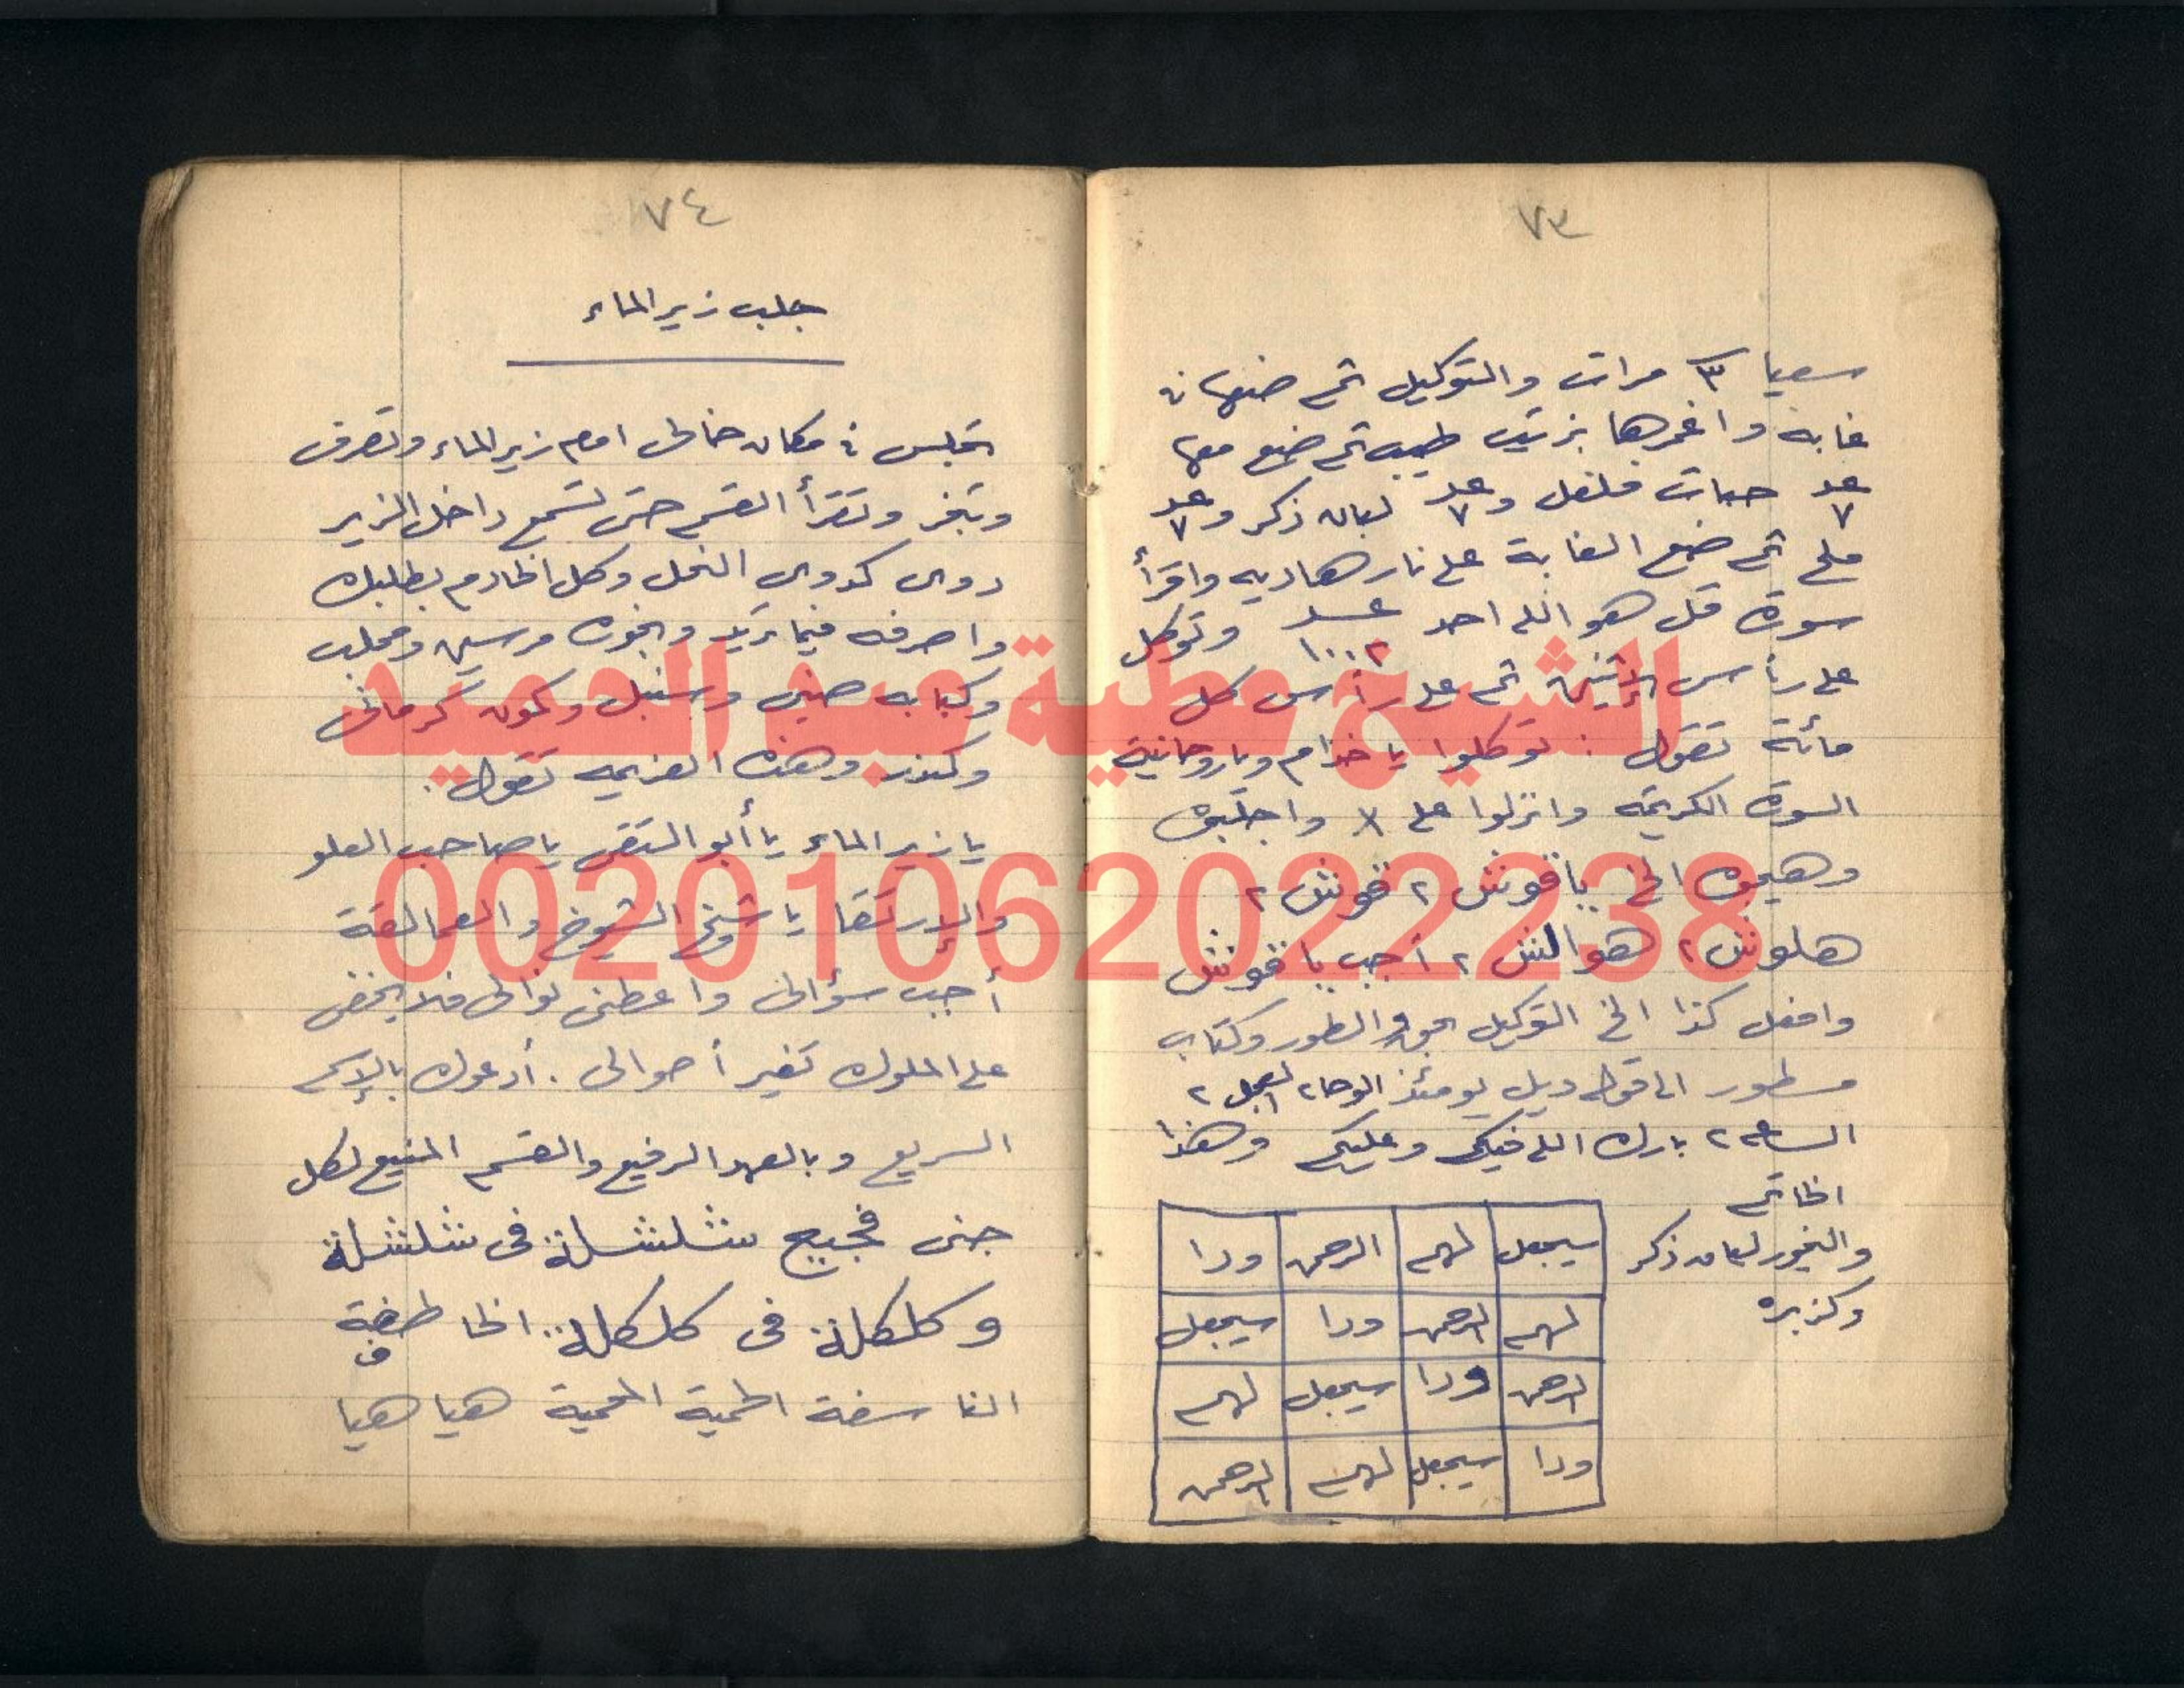 ٧٣
سعيا ٣ مرات والتوكيل ثم ضعها فى
غابه واغمرها بزيت طيب ثم ضع معها
عدد ٧ حبات فلفل وعدد ٧ لبان ذكر وعدد ٧
ملح ثم ضع الغابة على نار هاديه واقرأ
سورة قل هو الله احد عدد ١٠٠٢ وتوكل
على رأس الإثنين ثم على رأس كل
مائة تقول : توكلوا يا خدام وياروحانية
السورة الكريمة وانزلوا على واجلبوه
وهيجوه الخ ياقوش ٢ قوش ٢
هلوش ٢ هوالش ٢ أجب ياقوش
وافعل كذا الخ التوكيل بحق والطور وكتاب
مسطور الى قوله ويل يومئذ الوحا ٢ العجل ٢
الساعه ٢ بارك الله فيكم وعليكم وهذا
الخاتم
والبخور لبان ذكر
وكزبره
سيجعل لهم الرحمن ودا
لهم الرحمن ودا سيجعل
الرحمن ودا سيجعل لهم
ودا سيجعل لهم الرحمن
٧٤
جلب زير الماء
تجلس فى مكان خالى امام زير الماء وتصرف
وتبخر وتقرأ القسم حتى تسمع داخل الزير
دوى كدوى النحل وكل الخادم بطلبك
واصرفه فيما تريد وبخوره مرسين ومحلب
وكبابه صينى وسنبل وكمون كرمانى
وكندر وهذه العزيمه تقول.
يا زير الماء يا أبو التقى يا صاحب العلو
والإرتقا يا شيخ الشيوخ والعمالقة
أجب سؤالى واعطنى نوالى فلا يخفى
على الملوك تغير أحوالى . أدعوك بالإسم
السريع وبالعهد الرفيع والقسم المنيع لكل
جنى فجيج شلشلة فى شلشلة
وكلكلة فى كلكلة الخاطفة
ف
الناسفة الحمية المحمية هيا هيا
الشيخ عطية عبد الحميد
00201062022238